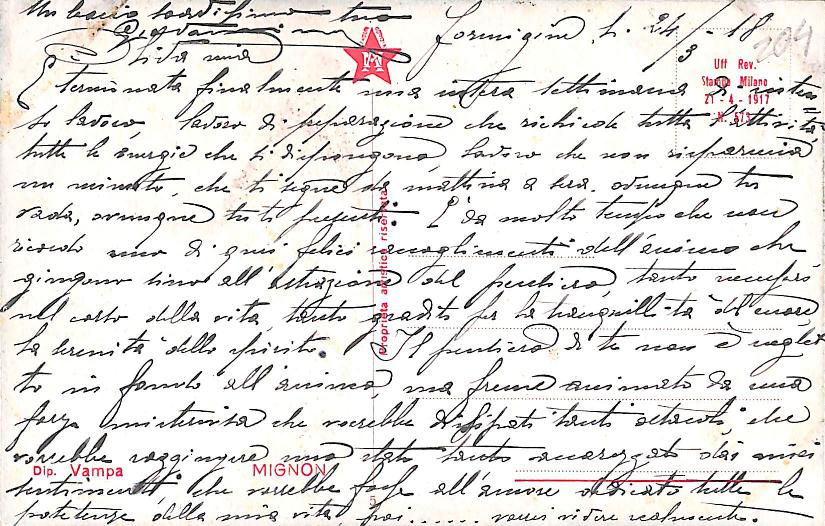 Un bacio tardissimo tuo
Giovannino
Formigine, li 24/3-18
204
Uff Rev.
Stampa Milano
21-4-1917
N. 573
Lida mia
È terminata finalmente una intera settimana di inten=
so lavoro, lavoro di preparazione che richiede tutta l'attività,
tutte le energie che si dispongono, lavoro che non risparmia
un minuto, che ti segue da mattina a sera, ovunque tu
vada, ovunque tu ti presenti. È da molto tempo che non
ricordo uno di quei felici raccoglimenti dell'animo che
giungono sino all'astrazione del pensiero, tanto necessari
nel corso della vita, tanto graditi per la tranquillità del cuore,
la serenità dello spirito. Il pensiero di te non è neglet
to in fondo all'anima, ma freme animato da una
forza misteriosa che vorrebbe dissipati tanti ostacoli, che
vorrebbe raggiungere uno stato tanto accarezzato dai miei
sentimenti, che vorrebbe forse all'amore dedicato tutte le
potenze della mia vita, poi...... vorrei vivere realmente.
Proprietà artistica riservata
Dip. Vampa
MIGNON
5